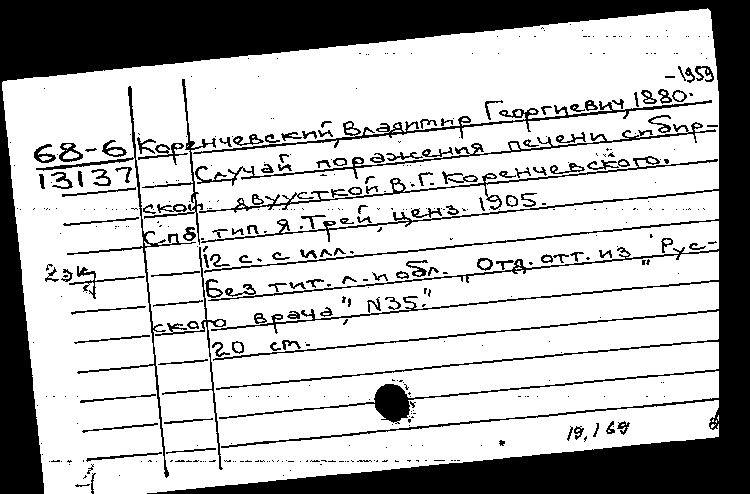 -1959
68-6 Коренчевский, Владимир Георгиевич, 1880.
13137 Случай поражения печени сибир-
ской двуусткой В. Г. Коренчевского.
Спб. тип. Я. Трей, ценз. 1905.
12 с. с илл.
2 эк
Без тит. л. и обл. "Отд. отт. из "Рус-
ского врача", N35."
20 см.
19,169